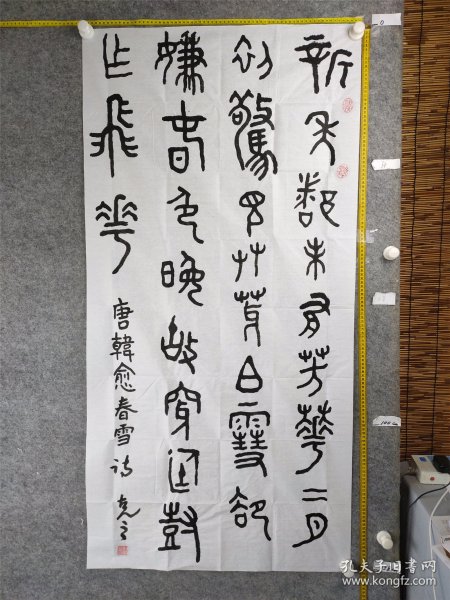 新年都未有芳華二月
初驚見草芽白雪卻
嫌春色晚故穿庭樹
作飛花
唐韓愈春雪詩
孔夫子旧书网
www.kongfz.com